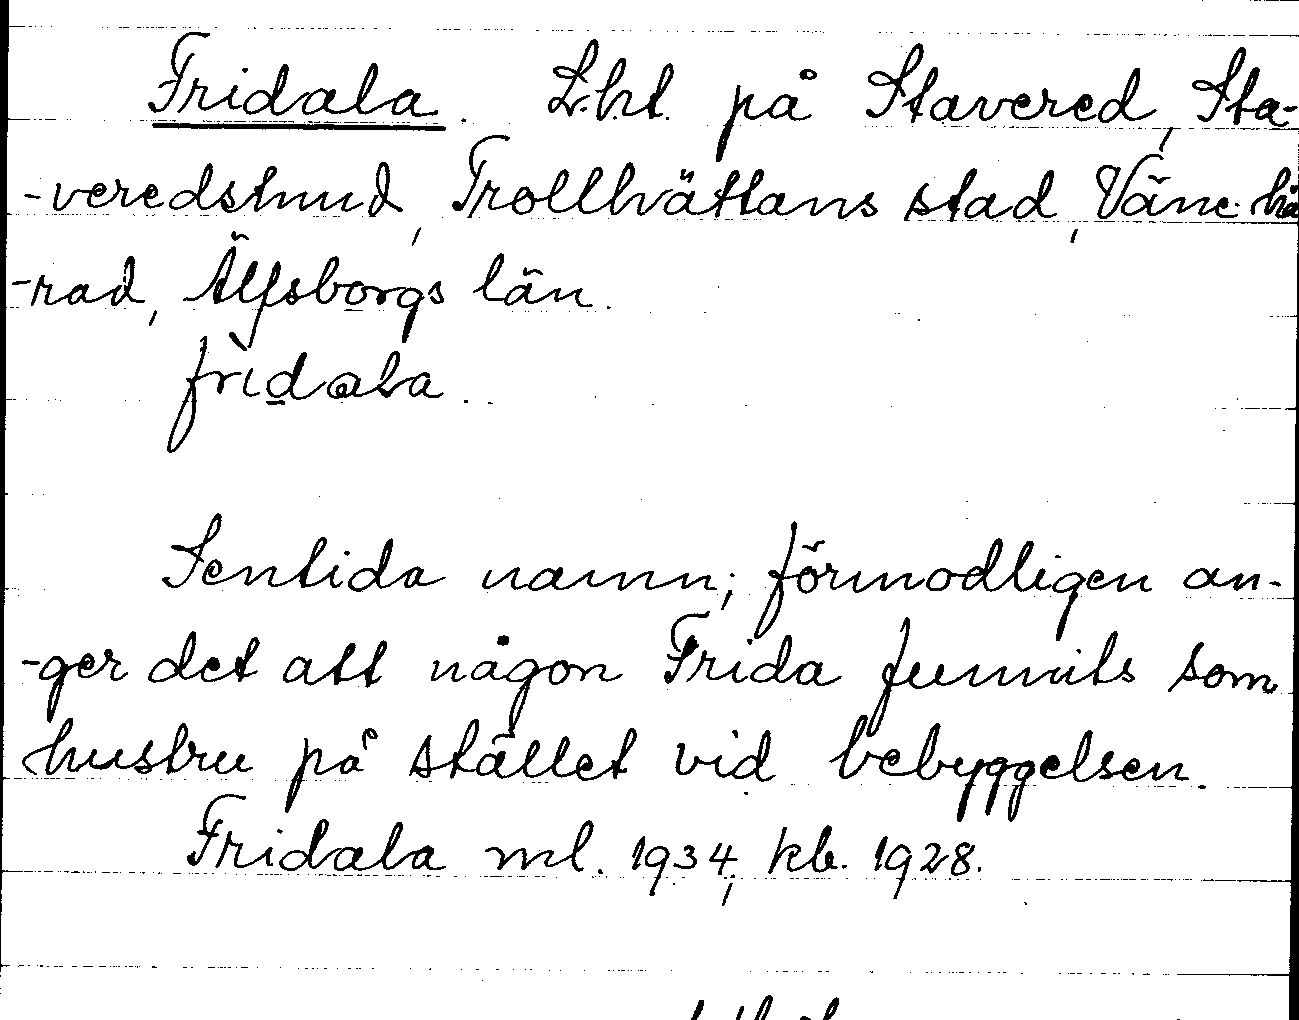 Fridala. L.ht. på Stavered, Sta-
-veredshud, Trollhättans stad, Väne hä
-rad, Älfsborgs län.
fridala.
Sentida namn; förmodligen an-
-ger det att någon Frida funnits som
hustru på stället vid bebyggelsen.
Fridala ml. 1934, kb. 1928.